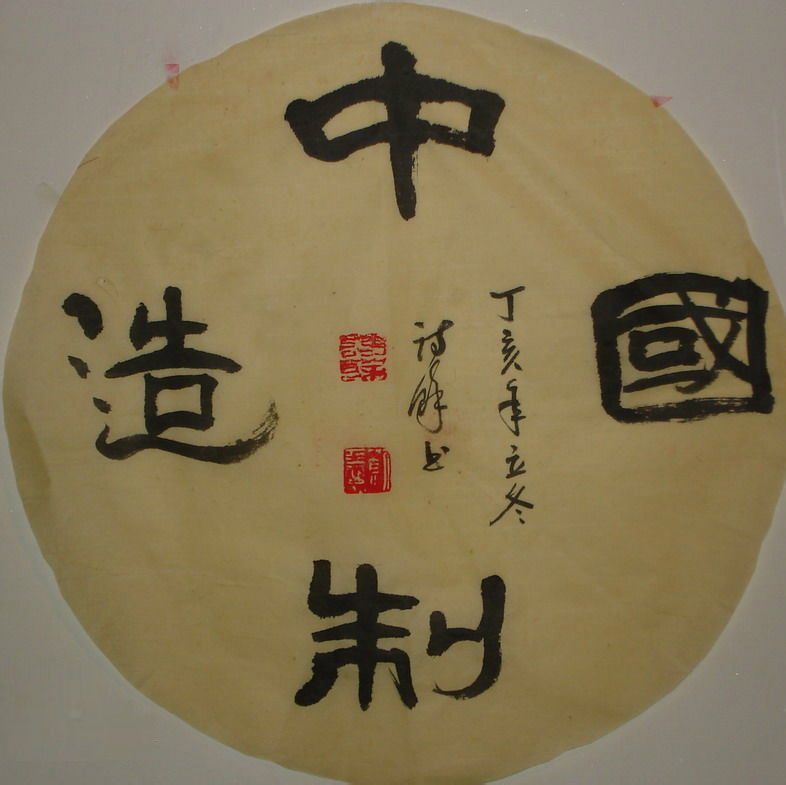 中
國
制
造
丁亥年立冬